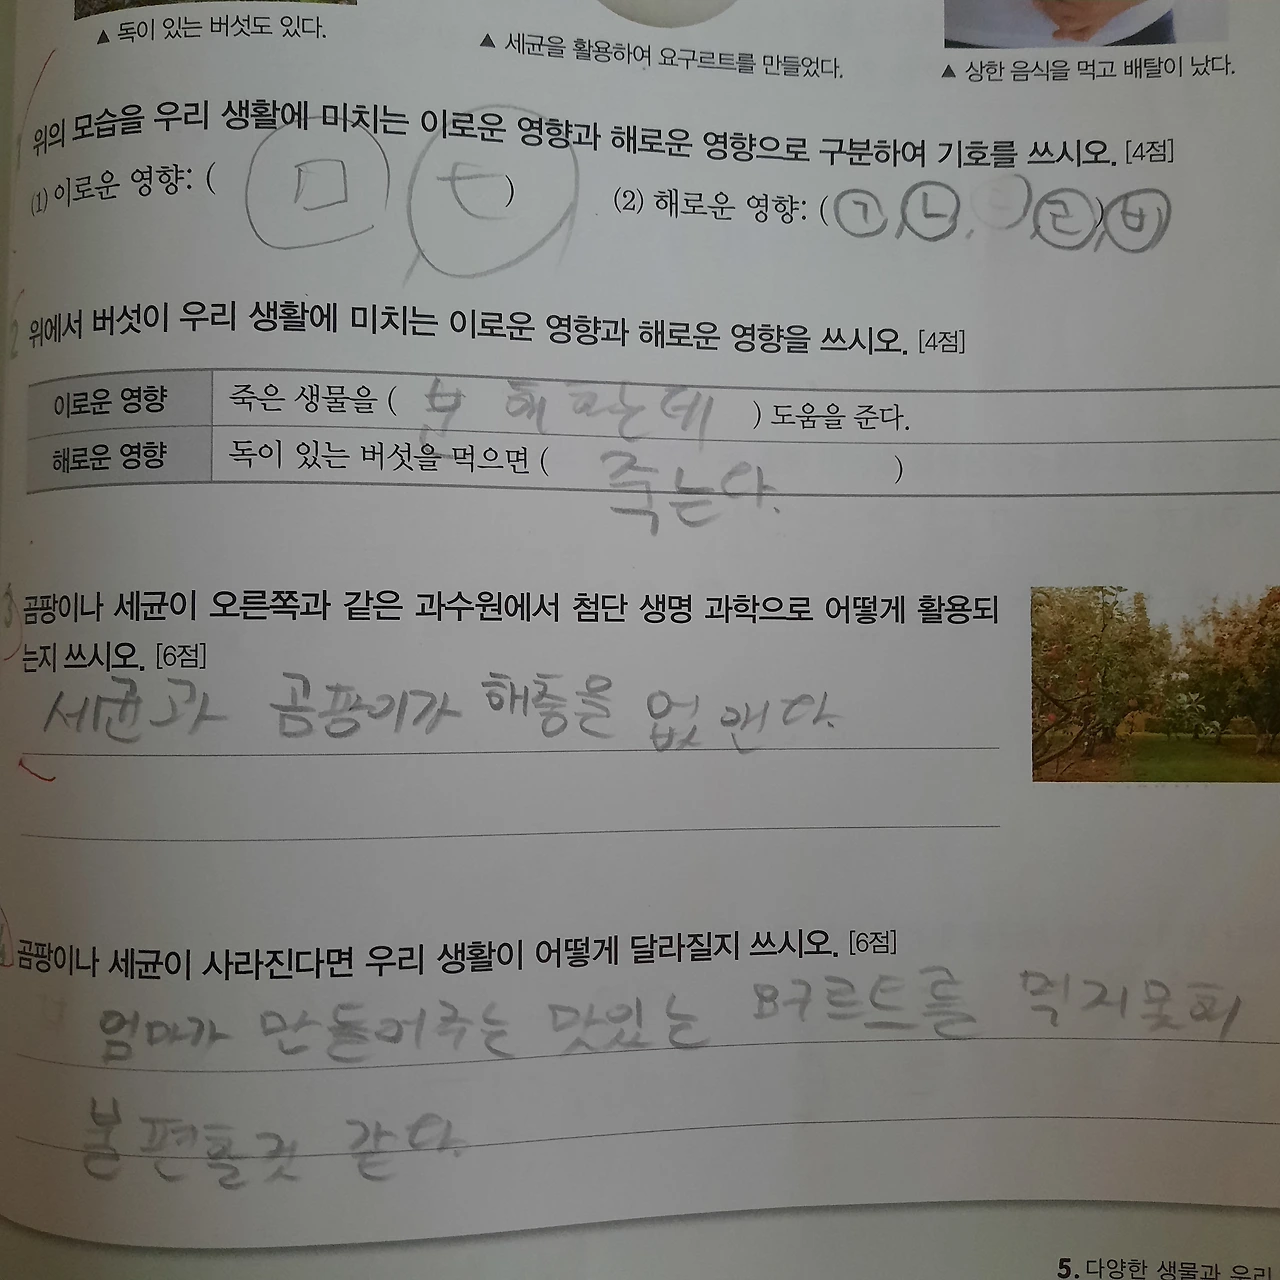 ▲ 독이 있는 버섯도 있다.
▲ 세균을 활용하여 요구르트를 만들었다.
▲ 상한 음식을 먹고 배탈이 났다.
위의 모습을 우리 생활에 미치는 이로운 영향과 해로운 영향으로 구분하여 기호를 쓰시오. [4점]
(1) 이로운 영향: ( ㅁ, ㄷ ) (2) 해로운 영향: ( ㄱ, ㄴ, ㄹ, ㅂ )
2 위에서 버섯이 우리 생활에 미치는 이로운 영향과 해로운 영향을 쓰시오. [4점]
이로운 영향 죽은 생물을 ( 분해하는데 ) 도움을 준다.
해로운 영향 독이 있는 버섯을 먹으면 ( 죽는다. )
3 곰팡이나 세균이 오른쪽과 같은 과수원에서 첨단 생명 과학으로 어떻게 활용되
는지 쓰시오. [6점]
세균과 곰팡이가 해충을 없앤다.
곰팡이나 세균이 사라진다면 우리 생활이 어떻게 달라질지 쓰시오. [6점]
엄마가 만들어주는 맛있는 요구르트를 먹지못회
불편흘것 같다.
5. 다양한 생물과 우리